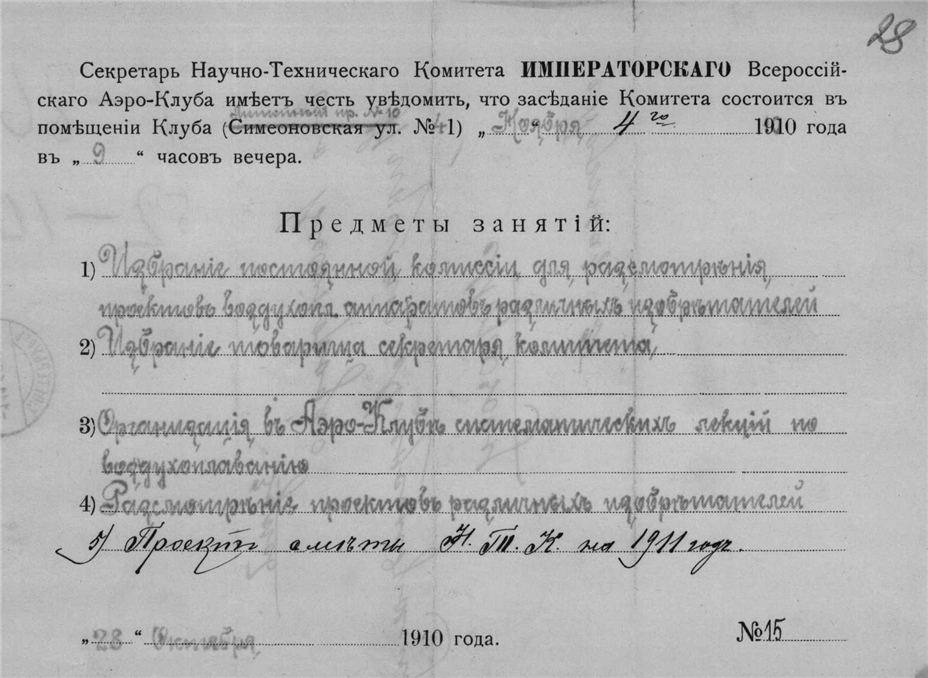 28
Секретарь Научно-Техническаго Комитета ИМПЕРАТОРСКАГО Всероссій-
скаго Аэро-Клуба имѣетъ честь увѣдомить, что засѣданіе Комитета состоится въ
пр. № 10
помѣщеніи Клуба (Симеоновская ул. № 1) „ Ноября “ 4го 1910 года
въ „ 9 “ часовъ вечера.
Предметы занятій:
1) Избраніе постоянной комиссіи для разсмотрѣнія
проектовъ воздухопл. аппаратовъ различныхъ изобрѣтателей
2) Избраніе товарища секретаря комитета
3) Организація въ Аэро-Клубѣ систематическихъ лекцій по
воздухоплаванію
4) Разсмотрѣніе проектовъ различныхъ изобрѣтателей
5) Проектъ смѣты Н. Т. К. на 1911 годъ.
„ 28 “ Октября 1910 года. № 15